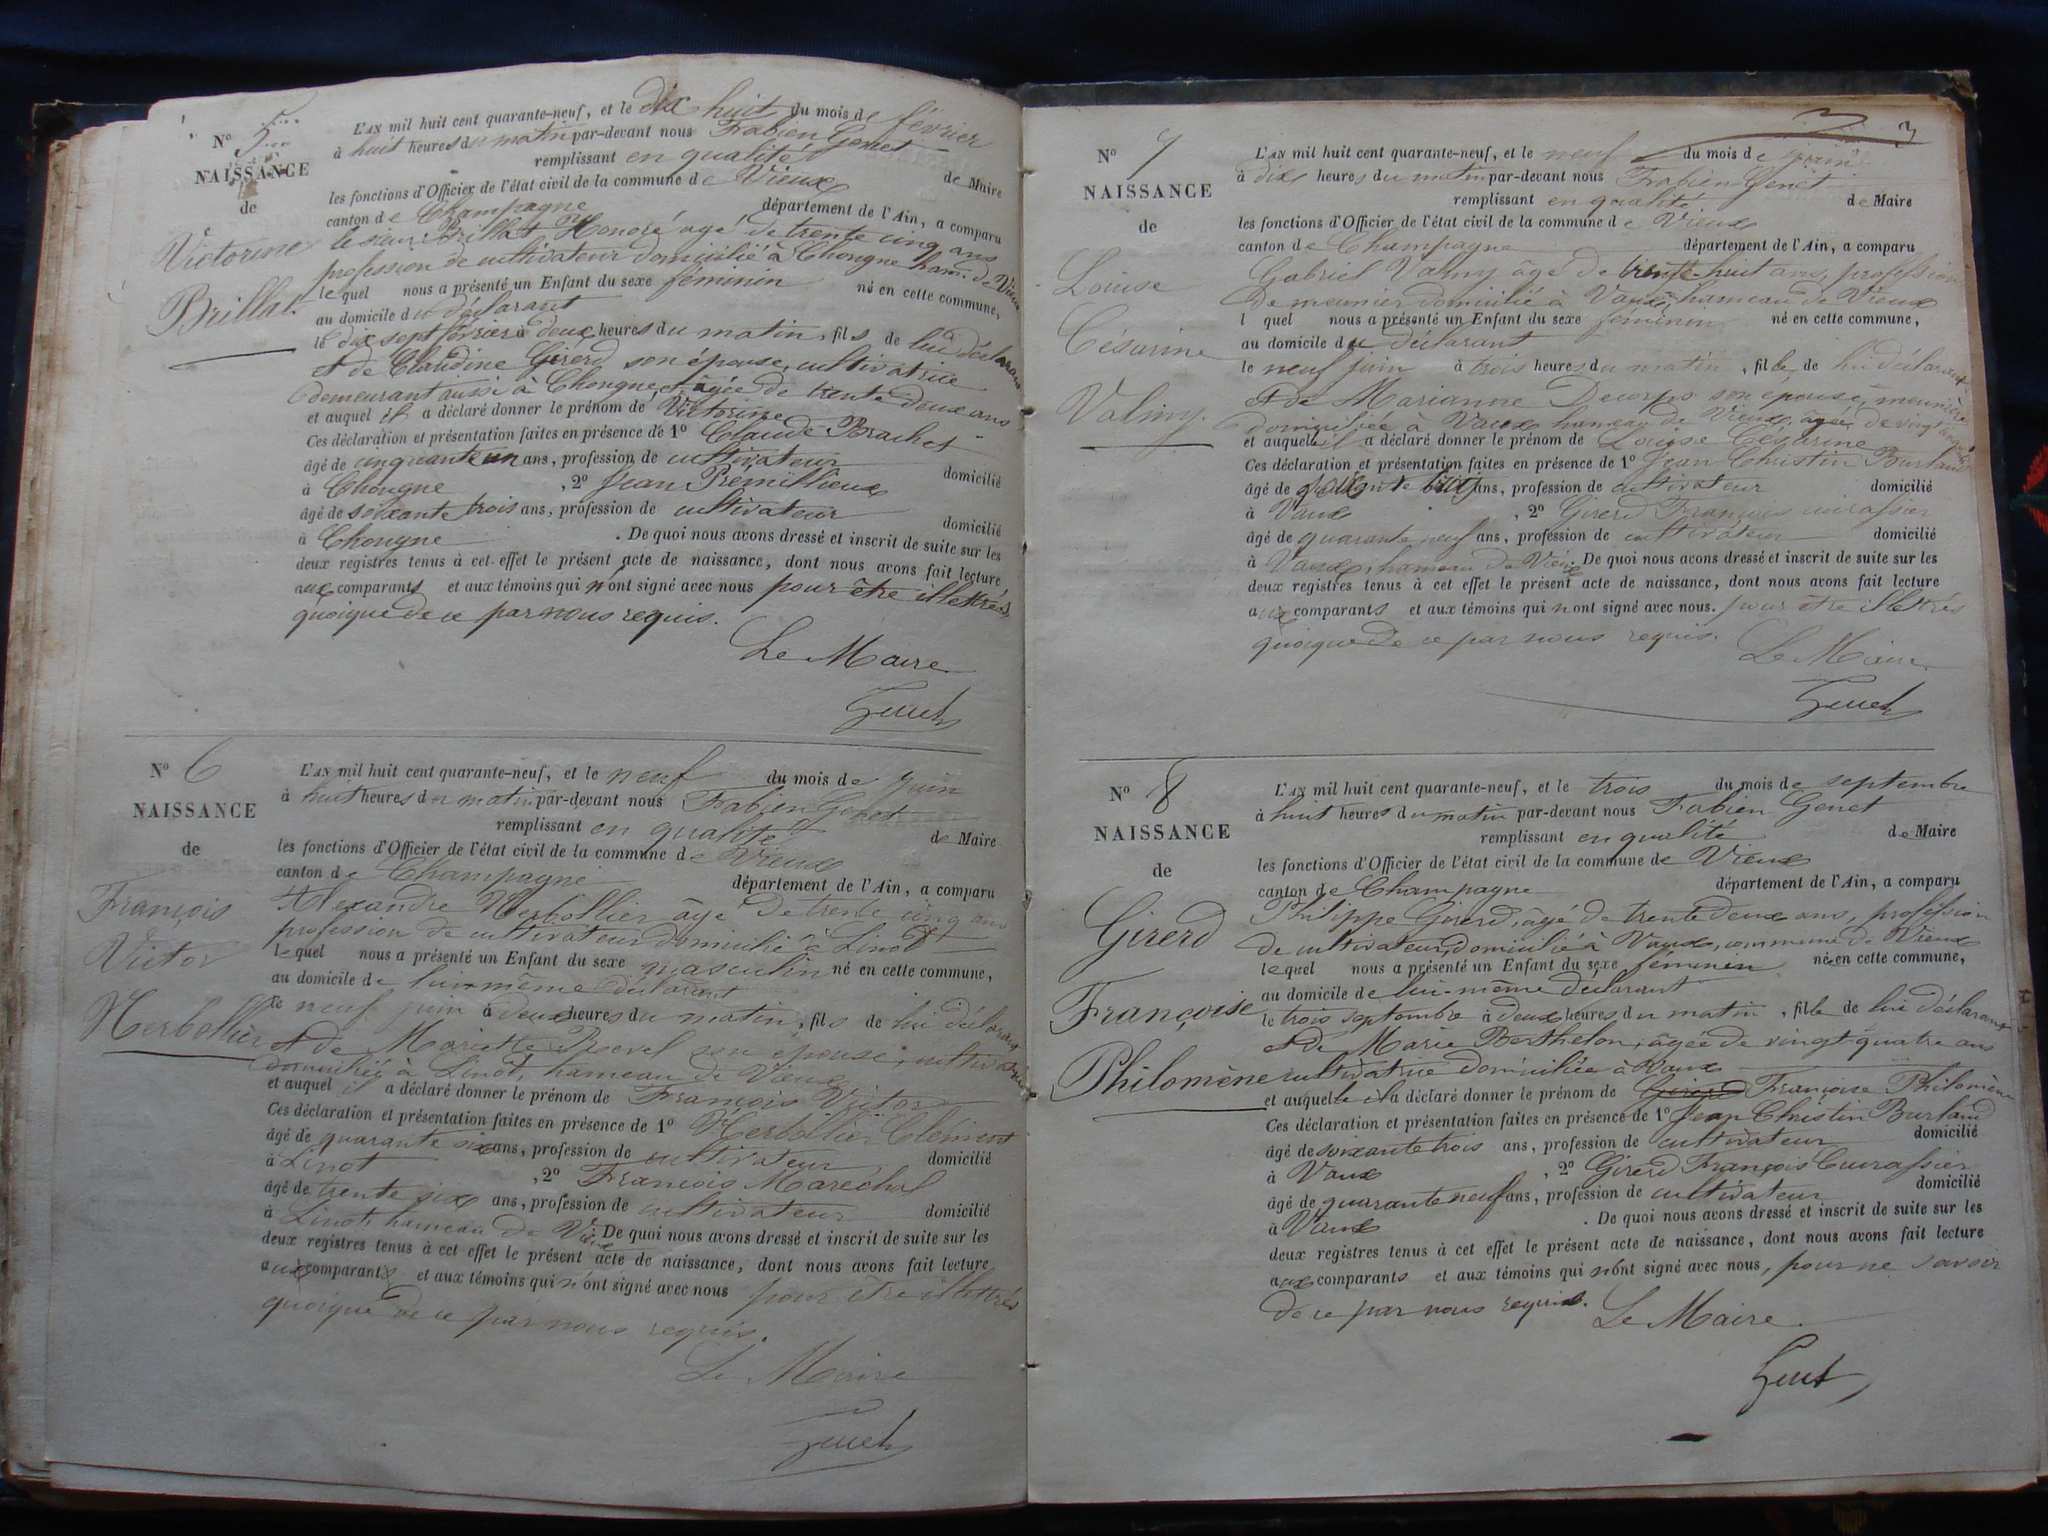 N° 5
NAISSANCE
de
Victorine
Brillat.
L'AN mil huit cent quarante-neuf, et le dix huit du mois de février
à huit heures du matin par-devant nous Fabien Genet
remplissant en qualité de Maire
les fonctions d'Officier de l'état civil de la commune de Vieux
canton de Champagne département de l'Ain, a comparu
le sieur Brillat Honoré âgé de trente cinq ans
profession de cultivateur domicilié à Chongne ham. de Vieux
lequel nous a présenté un Enfant du sexe féminin né en cette commune,
au domicile du déclarant
le dix sept février à deux heures du matin, fils de lui déclarant
et de Claudine Girerd son épouse, cultivatrice
demeurant aussi à Chongne et âgée de trente deux ans
et auquel il a déclaré donner le prénom de Victorine
Ces déclaration et présentation faites en présence de 1° Claude Brachet
âgé de cinquante un ans, profession de cultivateur domicilié
à Chongne , 2° Jean Prémillieux
âgé de soixante trois ans, profession de cultivateur domicilié
à Chongne . De quoi nous avons dressé et inscrit de suite sur les
deux registres tenus à cet effet le présent acte de naissance, dont nous avons fait lecture
aux comparants et aux témoins qui n'ont signé avec nous pour être illettrés
quoique de ce par nous requis.
Le Maire
Genet
N° 6
NAISSANCE
de
François
Victor
Herbollier
L'AN mil huit cent quarante-neuf, et le neuf du mois de juin
à huit heures du matin par-devant nous Fabien Genet
remplissant en qualité de Maire
les fonctions d'Officier de l'état civil de la commune de Vieux
canton de Champagne département de l'Ain, a comparu
Alexandre Herbollier âgé de trente cinq ans
profession de cultivateur domicilié à Linot
lequel nous a présenté un Enfant du sexe masculin né en cette commune,
au domicile de lui-même déclarant
le neuf juin à deux heures du matin, fils de lui déclarant
et de Mariette son épouse, cultivatrice
domiciliée à Linot, hameau de Vieux
et auquel il a déclaré donner le prénom de François Victor
Ces déclaration et présentation faites en présence de 1° Herbollier Clément
âgé de quarante six ans, profession de cultivateur domicilié
à Linot , 2° François Maréchal
âgé de trente six ans, profession de cultivateur domicilié
à Linot hameau de Vieux De quoi nous avons dressé et inscrit de suite sur les
deux registres tenus à cet effet le présent acte de naissance, dont nous avons fait lecture
aux comparants et aux témoins qui n'ont signé avec nous pour être illettrés
quoique de ce par nous requis.
Le Maire
Genet
3 3
N° 7
NAISSANCE
de
Louise
Césarine
Valmy.
L'AN mil huit cent quarante-neuf, et le neuf du mois de juin
à dix heures du matin par-devant nous Fabien Genet
remplissant en qualité de Maire
les fonctions d'Officier de l'état civil de la commune de Vieux
canton de Champagne département de l'Ain, a comparu
Gabriel Valmy âgé de trente-huit ans, profession
de meunier domicilié à Vaux, hameau de Vieux
l quel nous a présenté un Enfant du sexe féminin né en cette commune,
au domicile du déclarant
le neuf juin à trois heures du matin, fille de lui déclarant
et de Marianne Decorps son épouse, meunière
domiciliée à Vaux hameau de Vieux, âgée de vingt
et auquel il a déclaré donner le prénom de Louise Césarine
Ces déclaration et présentation faites en présence de 1° Jean Christin Burland
âgé de ans, profession de cultivateur domicilié
à Vaux , 2° Girerd François cuirassier
âgé de quarante neuf ans, profession de cultivateur domicilié
à Vaux, hameau de Vieux De quoi nous avons dressé et inscrit de suite sur les
deux registres tenus à cet effet le présent acte de naissance, dont nous avons fait lecture
aux comparants et aux témoins qui n ont signé avec nous. pour être illettrés
quoique de ce par nous requis.
Le Maire
Genet
N° 8
NAISSANCE
de
Girerd
Françoise
Philomène
L'AN mil huit cent quarante-neuf, et le trois du mois de septembre
à huit heures du matin par-devant nous Fabien Genet
remplissant en qualité de Maire
les fonctions d'Officier de l'état civil de la commune de Vieux
canton de Champagne département de l'Ain, a comparu
Philippe Girerd, âgé de trente deux ans, profession
de cultivateur, domicilié à Vaux, commune de Vieux
lequel nous a présenté un Enfant du sexe féminin née en cette commune,
au domicile de lui-même déclarant
le trois septembre à deux heures du matin, fille de lui déclarant
et de Marie Berthelon, âgée de vingt-quatre ans
cultivatrice domiciliée à Vaux
et auquelle il a déclaré donner le prénom de Girerd Françoise Philomène
Ces déclaration et présentation faites en présence de 1° Jean Christin Burland
âgé de soixante trois ans, profession de cultivateur domicilié
à Vaux , 2° Girerd François Cuirassier
âgé de quarante neuf ans, profession de cultivateur domicilié
à Vaux . De quoi nous avons dressé et inscrit de suite sur les
deux registres tenus à cet effet le présent acte de naissance, dont nous avons fait lecture
aux comparants et aux témoins qui n'ont signé avec nous, pour ne savoir
de ce par nous requis. Le Maire.
Genet